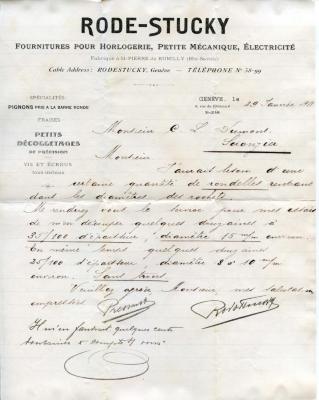 RODE-STUCKY
FOURNITURES POUR HORLOGERIE, PETITE MÉCANIQUE, ÉLECTRICITÉ
Fabrique à St-PIERRE de RUMILLY (Hte-Savoie)
Cable Address: RODESTUCKY, Genève — TÉLÉPHONE Nº 58-99
SPÉCIALITÉS:
PIGNONS PRIS A LA BARRE RONDE
FRAISES
PETITS
DÉCOLLETAGES
DE PRÉCISION
VIS ET ÉCROUS
GENÈVE, le 29 Janvier
Monsieur C. L. Dumont.
Monsieur
J'aurais besoin d'une
certaine quantité de rondelles rentrant
dans les diamètres des
Me rendrez vous le service pour mes essais
de m'en découper quelques douzaines à
35/100 d'épaisseur, diamètre 15 m/m environ.
En même temps quelques douzaines
25/100 d'épaisseur, diamètre 8 à 10 m/m
environ. Sans trous.
Veuillez agréer Monsieur, mes salutations
empressées
Rode-Stucky
Il m'en faudrait quelques cents